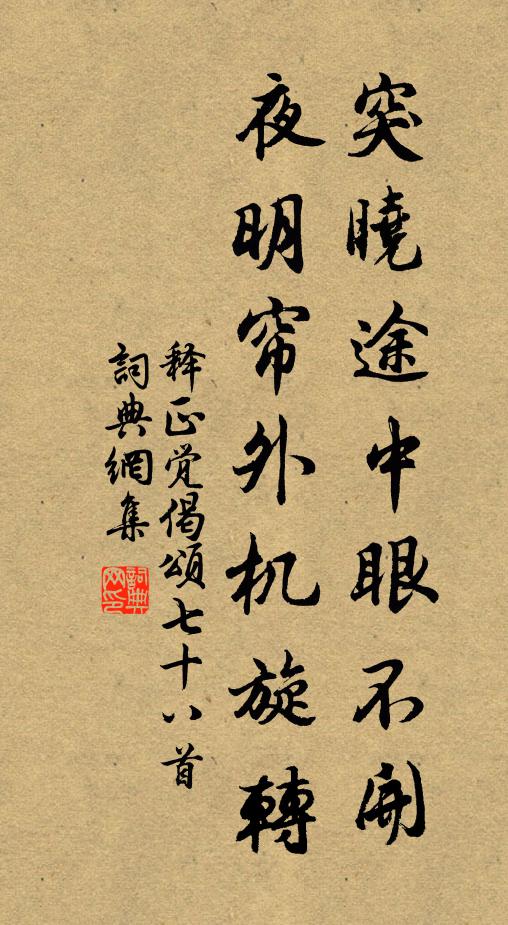 突曉途中眼不開
夜明帘外机旋轉
释正覚偈頌七十八首
詞典網集
詞典网印